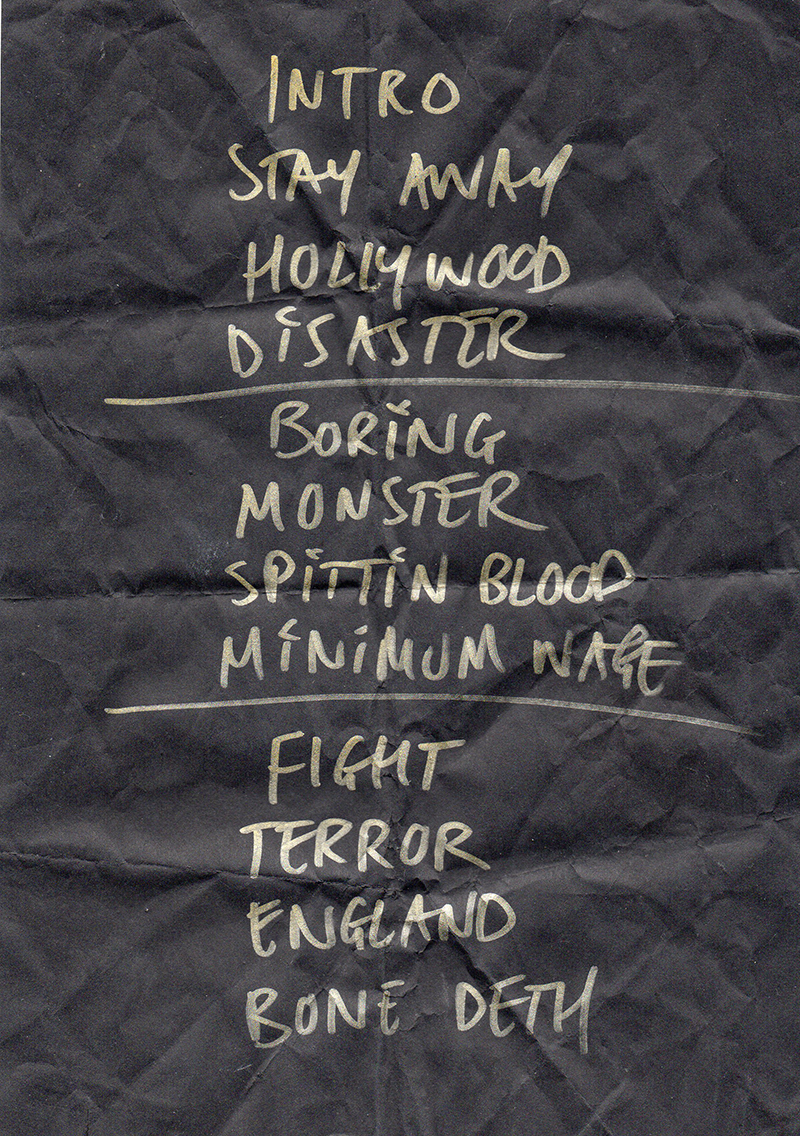 INTRO
STAY AWAY
HOLLYWOOD
DISASTER
BORING
MONSTER
SPITTIN BLOOD
MINIMUM WAGE
FIGHT
TERROR
ENGLAND
BONE DETH